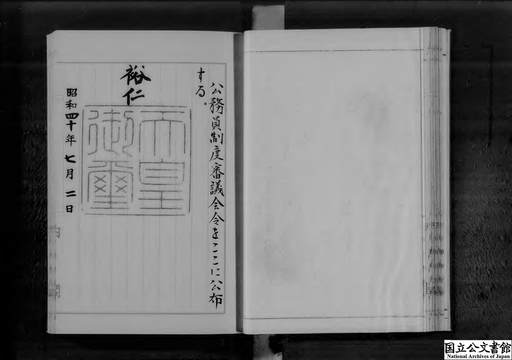 公務員制度審議会令をここに公布
する。
裕仁
天皇
御璽
昭和四十年七月二日
国立公文書館
National Archives of Japan